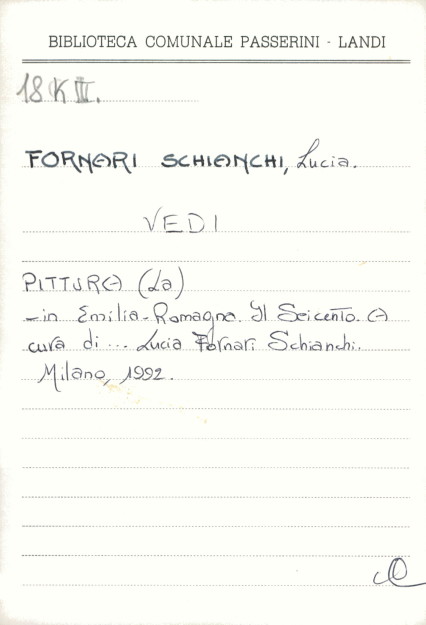 BIBLIOTECA COMUNALE PASSERINI - LANDI
18 K III.
FORNARI SCHIANCHI, Lucia.
VEDI
PITTURA (La)
- in Emilia-Romagna. Il Seicento. A
cura di ... Lucia Fornari Schianchi.
Milano, 1992.